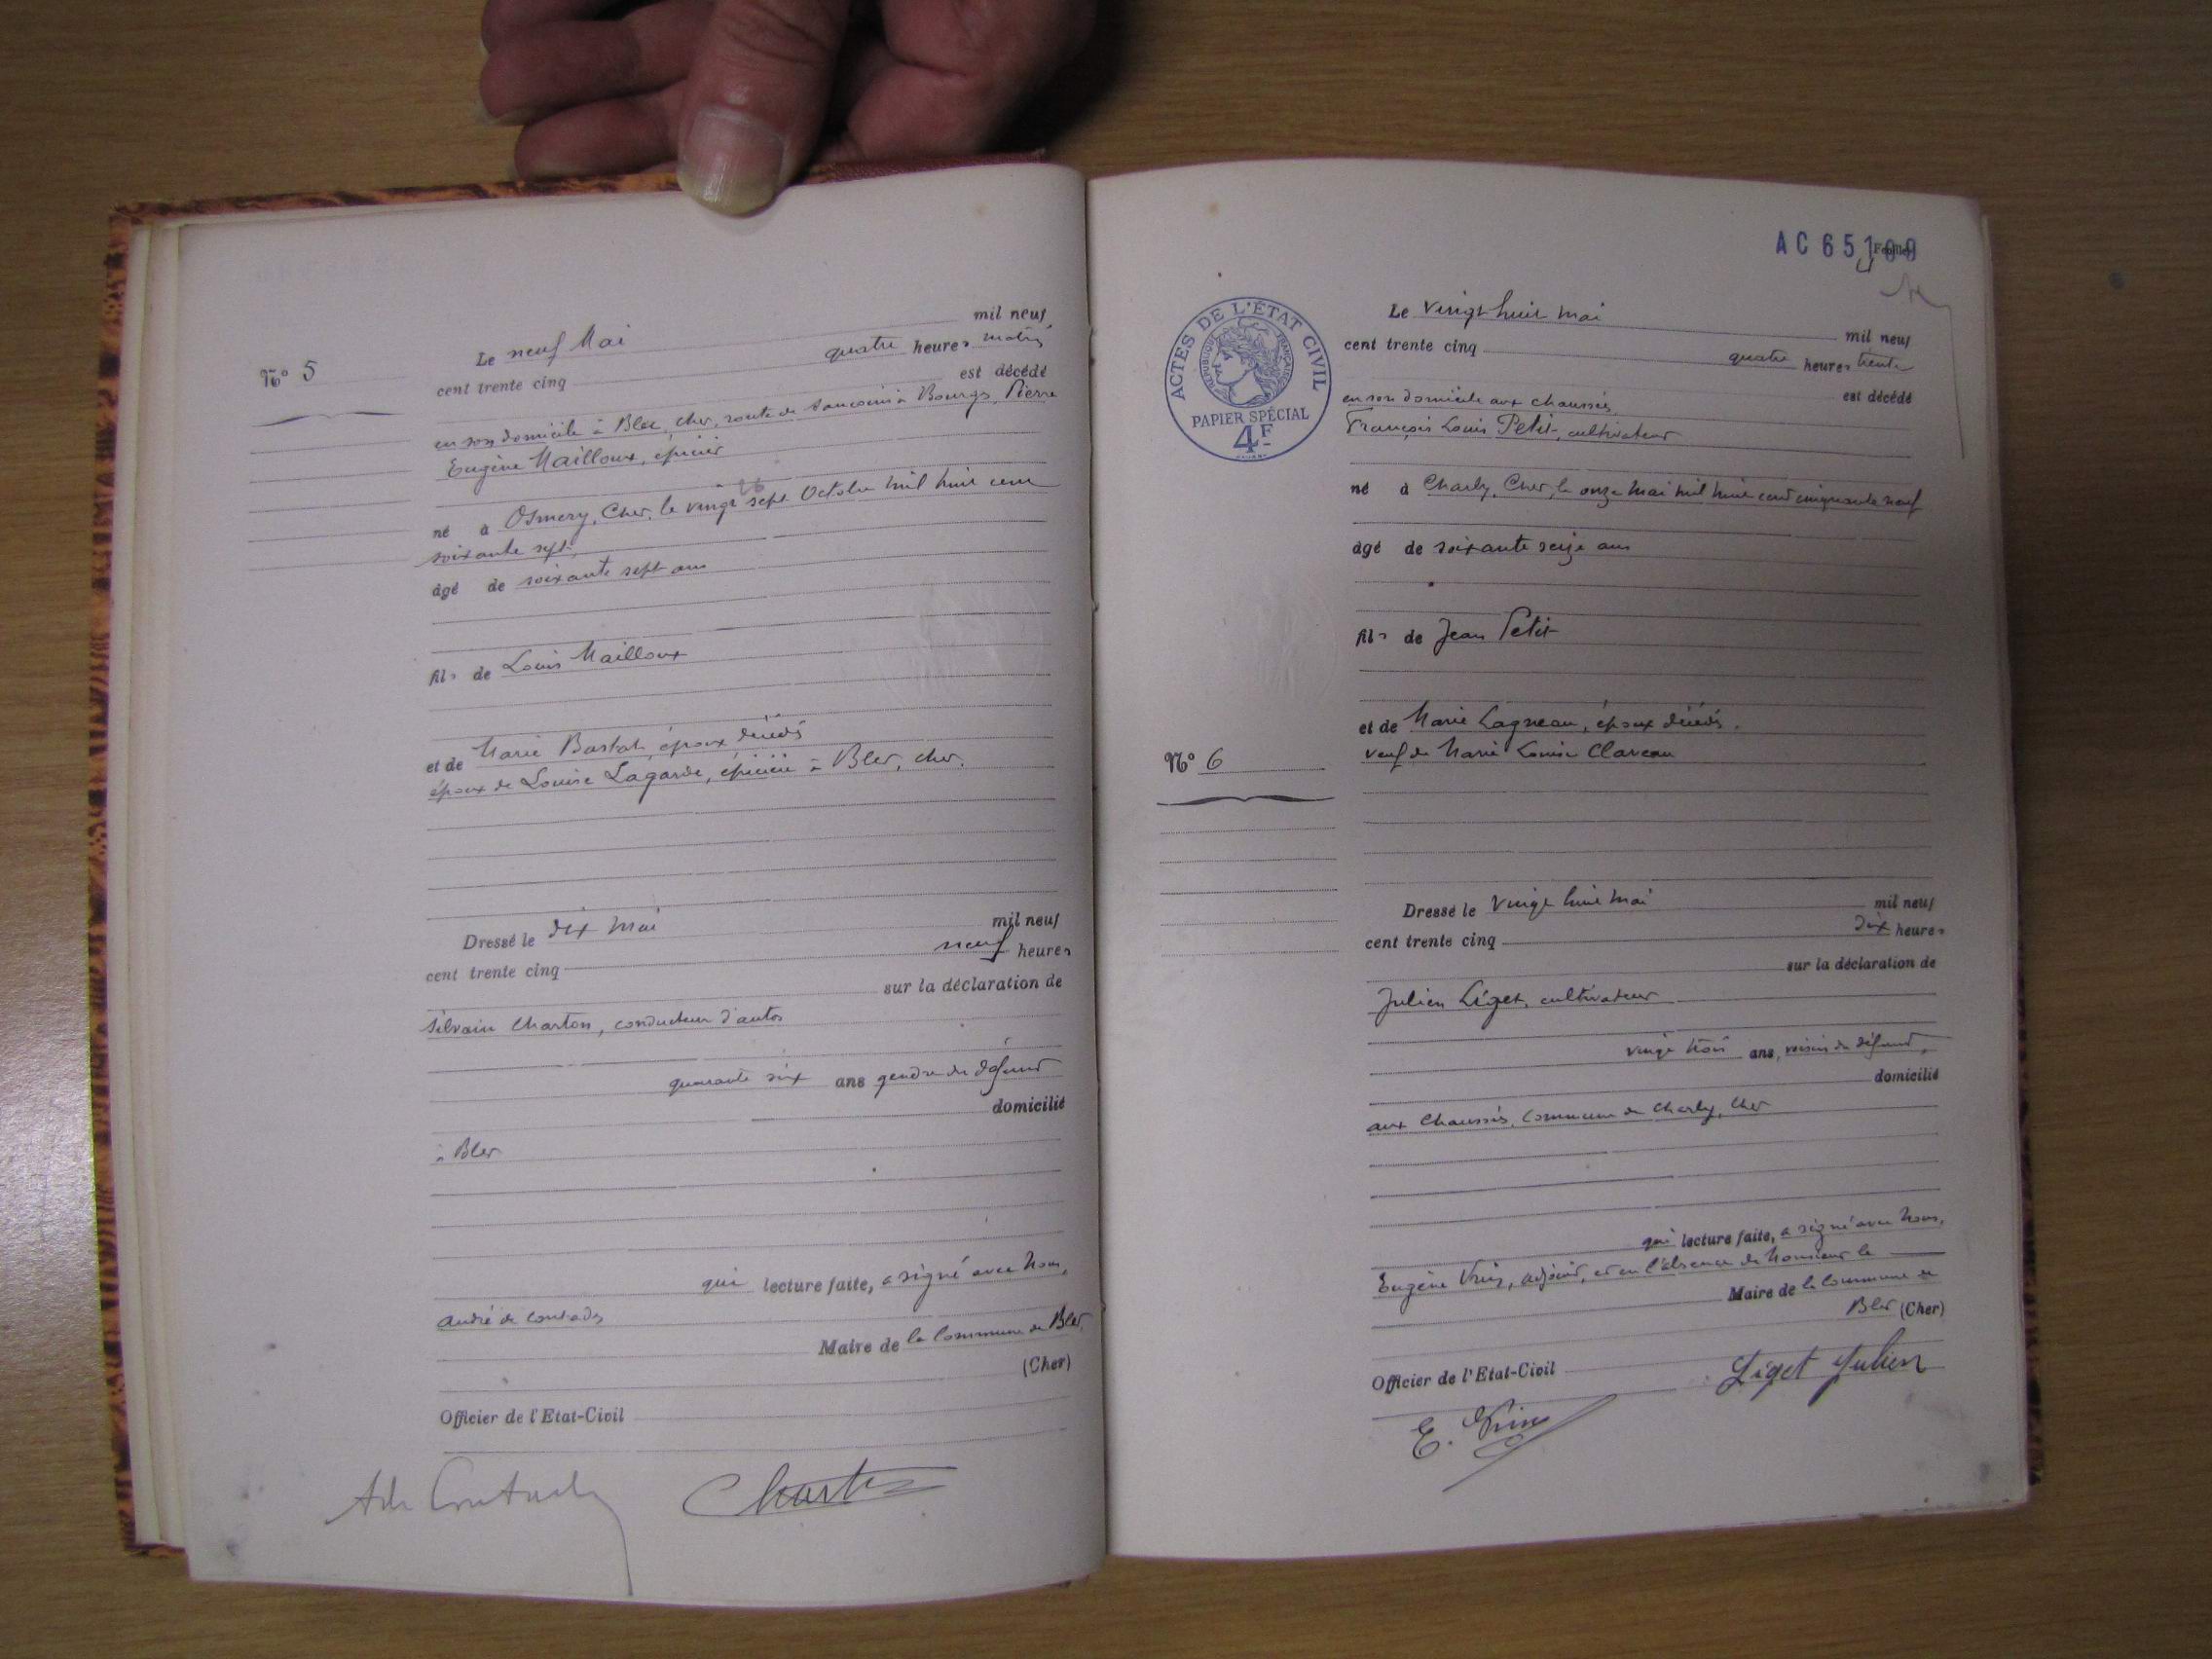 N° 5
Le neuf Mai mil neuf
cent trente cinq quatre heures matin
est décédé
en son domicile à Blet, Cher, route de Sancoins à Bourges, Pierre
Eugène Mailloux, épicier
né à Osmery, Cher, le vingt sept Octobre mil huit cent
soixante sept,
âgé de soixante sept ans
fils de Louis Mailloux
et de Marie Bastat, époux décédés
époux de Louise Lagarde, épicière à Blet, Cher.
Dressé le dix Mai mil neuf
cent trente cinq neuf heures
sur la déclaration de
Silvain Charton, conducteur d'autos
quarante six ans gendre du défunt
domicilié
à Blet
qui lecture faite, a signé avec Nous,
André de Contades
Maire de la Commune de Blet
(Cher)
Officier de l'Etat-Civil
A de Contades Charton
AC 65
ACTES DE L'ÉTAT CIVIL
RÉPUBLIQUE FRANÇAISE
PAPIER SPÉCIAL
4F
Le Vingt huit mai mil neuf
cent trente cinq quatre heures trente
est décédé
en son domicile aux chaussés
François Louis Petit, cultivateur
né à Charly, Cher, le onze Mai mil huit cent cinquante neuf
âgé de soixante seize ans
fils de Jean Petit
et de Marie Lagneau, époux décédés.
veuf de Marie Louise Claveau
N° 6
Dressé le Vingt huit Mai mil neuf
cent trente cinq Dix heures
sur la déclaration de
Julien Liget, cultivateur
vingt trois ans, voisin du défunt,
domicilié
aux Chaussés, Commune de Charly, Cher
qui lecture faite, a signé avec Nous,
Eugène Vrin, adjoint, et en l'absence de Monsieur le
Maire de la Commune de
Blet (Cher)
Officier de l'Etat-Civil
Liget Julien
E. Vrin